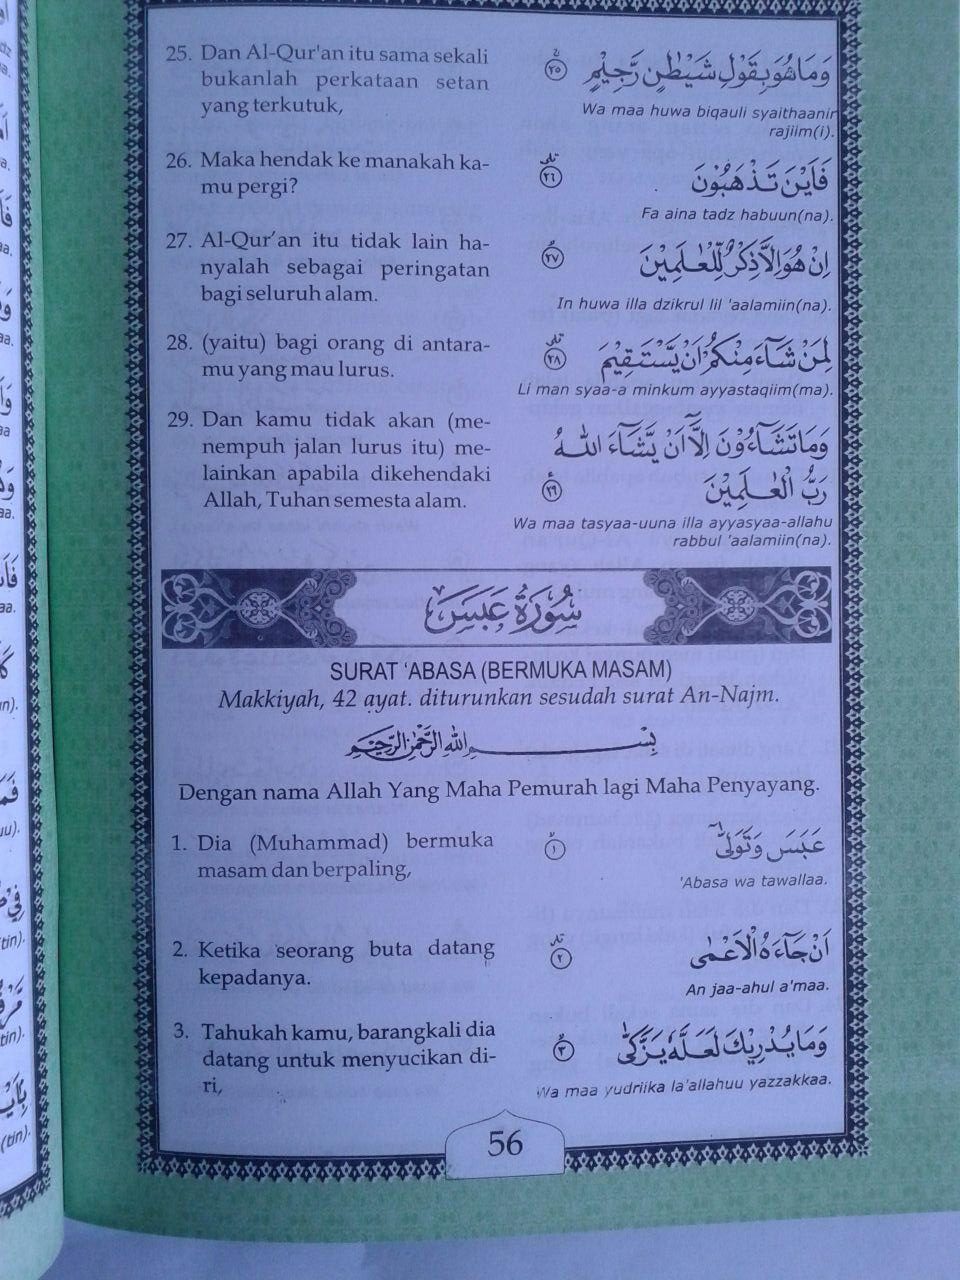 25. Dan Al-Qur'an itu sama sekali
bukanlah perkataan setan
yang terkutuk,
وَمَا هُوَ بِقَوْلِ شَيْطٰنٍ رَّجِيْمٍ ٢٥
Wa maa huwa biqauli syaithaanir
rajiim(i).
26. Maka hendak ke manakah ka-
mu pergi?
فَاَيْنَ تَذْهَبُوْنَ ٢٦
Fa aina tadz habuun(na).
27. Al-Qur'an itu tidak lain ha-
nyalah sebagai peringatan
bagi seluruh alam.
اِنْ هُوَ اِلَّا ذِكْرٌ لِّلْعٰلَمِيْنَ ٢٧
In huwa illa dzikrul lil 'aalamiin(na).
28. (yaitu) bagi orang di antara-
mu yang mau lurus.
لِمَنْ شَآءَ مِنْكُمْ اَنْ يَّسْتَقِيْمَ ٢٨
Li man syaa-a minkum ayyastaqiim(ma).
29. Dan kamu tidak akan (me-
nempuh jalan lurus itu) me-
lainkan apabila dikehendaki
Allah, Tuhan semesta alam.
وَمَا تَشَآءُوْنَ اِلَّآ اَنْ يَّشَآءَ اللّٰهُ
رَبُّ الْعٰلَمِيْنَ ٢٩
Wa maa tasyaa-uuna illa ayyasyaa-allahu
rabbul 'aalamiin(na).
سُوْرَةُ عَبَسَ
SURAT 'ABASA (BERMUKA MASAM)
Makkiyah, 42 ayat. diturunkan sesudah surat An-Najm.
بِسْمِ اللّٰهِ الرَّحْمٰنِ الرَّحِيْمِ
Dengan nama Allah Yang Maha Pemurah lagi Maha Penyayang.
1. Dia (Muhammad) bermuka
masam dan berpaling,
عَبَسَ وَتَوَلّٰىٓ ١
'Abasa wa tawallaa.
2. Ketika seorang buta datang
kepadanya.
اَنْ جَآءَهُ الْاَعْمٰى ٢
An jaa-ahul a'maa.
3. Tahukah kamu, barangkali dia
datang untuk menyucikan di-
ri,
وَمَا يُدْرِيْكَ لَعَلَّهٗ يَزَّكّٰىٓ ٣
Wa maa yudriika la'allahuu yazzakkaa.
56